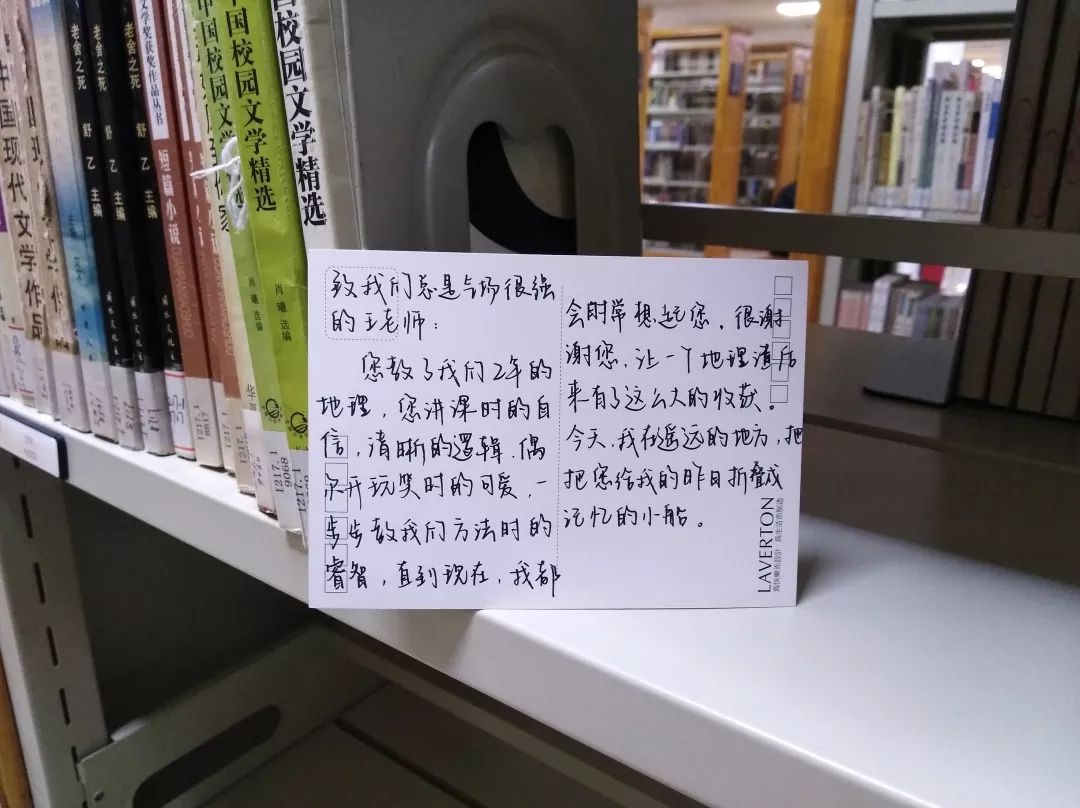 致我们总是气场很强
的王老师:
您教了我们2年的
地理,您讲课时的自
信,清晰的逻辑,偶
尔开玩笑时的可爱,一
步步教我们方法时的
睿智,直到现在,我都
会时常想起您,很谢
谢您,让一个地理渣后
来有了这么大的收获。
今天,我在遥远的地方,把
把您给我的昨日折叠成
记忆的小船。
LAVERTON
中国现代文学作品
老舍之死 舒乙 主编
老舍之死 舒乙 主编
老舍之死 舒乙 主编
文学奖获奖作品丛书
短篇小说
中国校园文学精选
肖曦 选编
国校园文学精选
肖曦 选编
1217.1
9068
1217.1